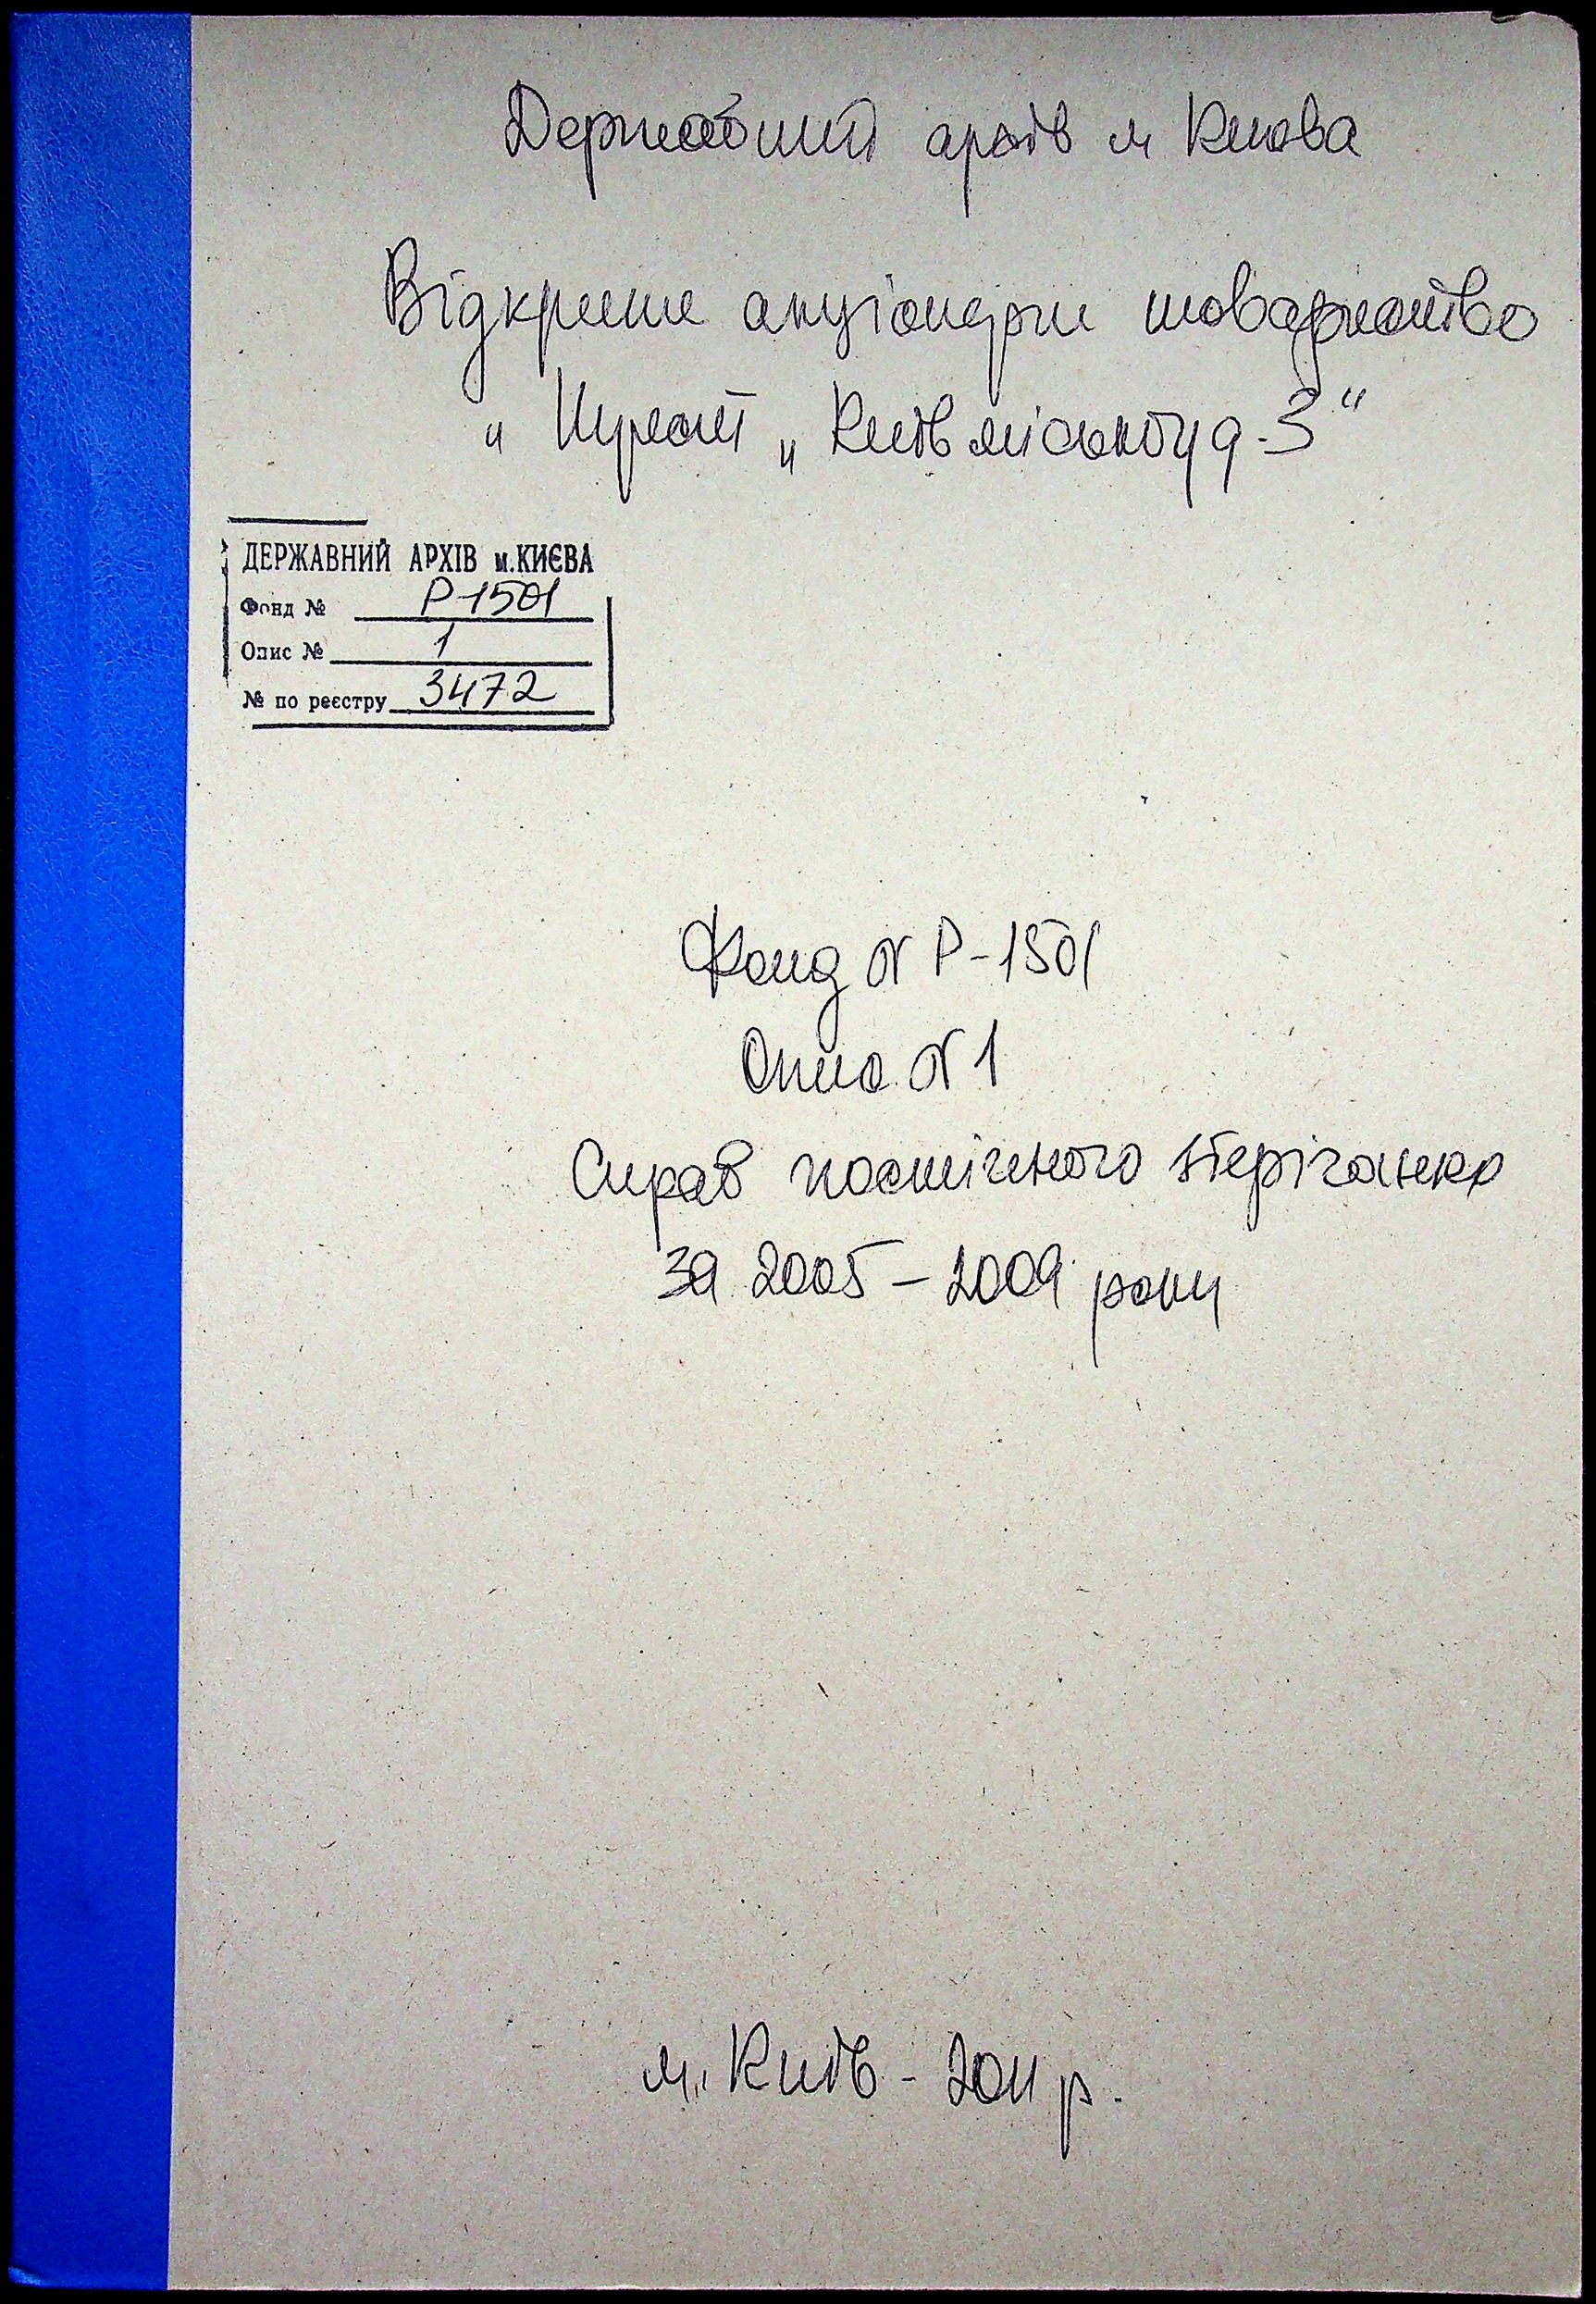 Державний архів м Києва
Відкрите акціонерне товариство
„Трест „Київміськбуд-3"
ДЕРЖАВНИЙ АРХІВ м.КИЄВА
Фонд № Р-1501
Опис № 1
№ по реєстру 3472
Фонд N Р-1501
Опис N 1
Справ постійного зберігання
за 2005-2009 роки
м. Київ - 2011 р.